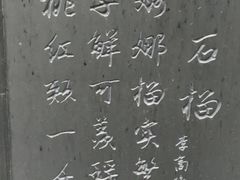 石榴
李商
婀娜榴实繁
鲜可羡
桃红颗一